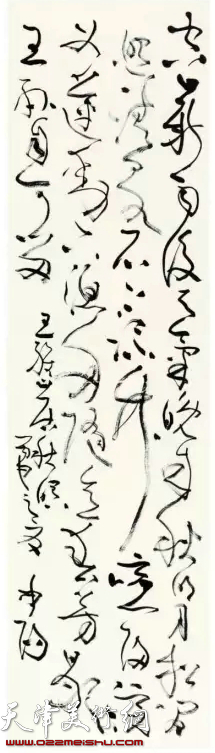 空山新雨後天氣晚來秋明月松間
照清泉石上流竹喧歸浣
女蓮動下漁舟隨意春芳歇
王孫自可留
王維山居秋暝
天津美术网
www.022meishu.com